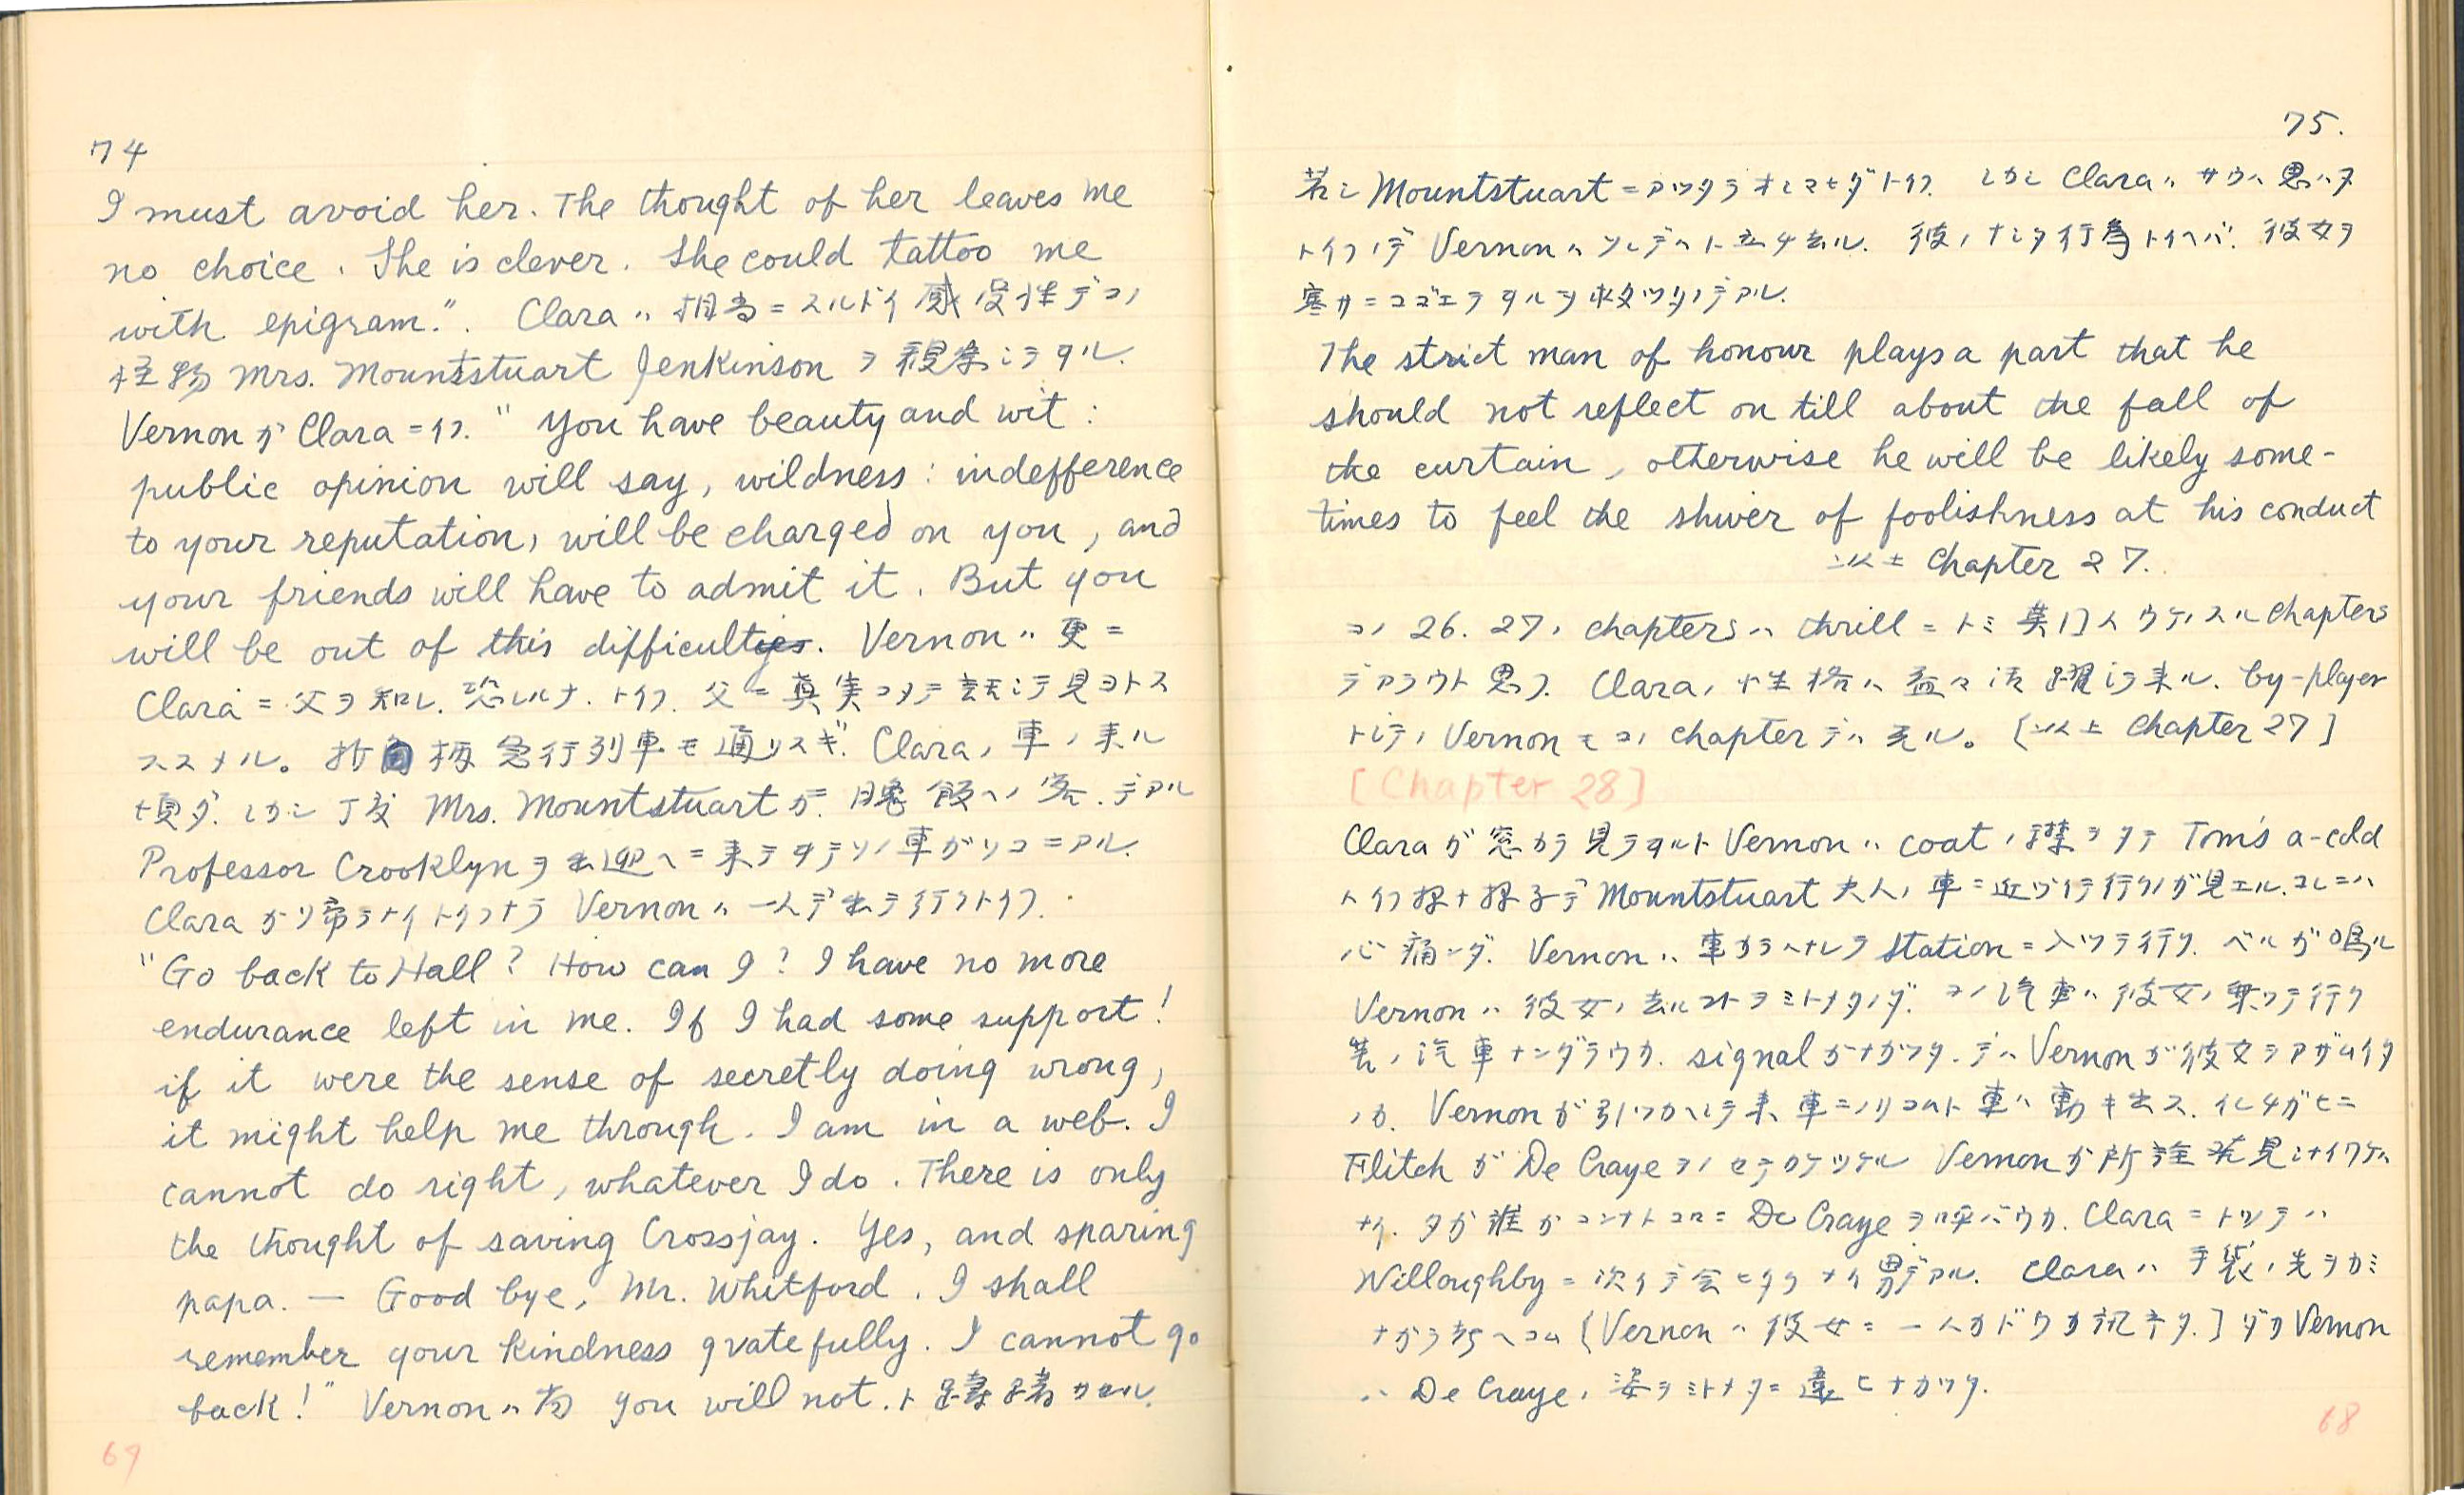 74
I must avoid her. The thought of her leaves me
no choice. She is clever. She could tattoo me
with epigram.". Clara ハ 相当ニスルドイ感受性デコノ
怪物 Mrs. Mountstuart Jenkinson ヲ観察シテヰル.
Vernon ガ Clara ニイフ. "You have beauty and wit:
public opinion will say, wildness: indefference
to your reputation, will be charged on you, and
your friends will have to admit it. But you
will be out of this difficulties. Vernon ハ 更ニ
Clara ニ 父ヲ知レ. 恐レルナ. トイフ. 父ニ真実コメテ話シテ見ヨトス
ススメル。折角 急行列車モ通リスギ. Clara ノ車ノ来ル
頃ダ. シカシ丁度 Mrs. Mountstuart ガ 晩飯ヘノ客デアル
Professor Crooklyn ヲ出迎ヘニ来テヰテソノ車ガソコニアル.
Clara ガソ帰ラナイトイフナラ Vernon ハ 一人デ出テ行クトイフ.
"Go back to Hall? How can I? I have no more
endurance left in me. If I had some support!
if it were the sense of secretly doing wrong,
it might help me through. I am in a web. I
cannot do right, whatever I do. There is only
the thought of saving Crossjay. Yes, and sparing
papa. — Good bye, Mr. Whitford. I shall
remember your kindness gratefully. I cannot go
back!" Vernon ハ 尚 you will not. ト 躊躇サセル.
69
75.
若シ Mountstuart ニアツタラオシマヒダトイフ. シカシ Clara ハ サウハ思ハヌ
トイフノデ Vernon ハ ソレデハト立チ去ル. 彼ノナシタ行為トイヘバ. 彼女ヲ
寒サニコゴエテヰルヲ救ツタノデアル.
The strict man of honour plays a part that he
should not reflect on till about the fall of
the curtain, otherwise he will be likely some-
times to feel the shiver of foolishness at his conduct
以上 Chapter 27.
コノ 26. 27. chapters ハ thrill ニトミ 英 ウケノスル chapters
デアラウト思フ. Clara ノ性格ハ益々活躍シテ来ル. by-player
トシテノ Vernon モコノ chapter デハ 光ル。[以上 Chapter 27]
[Chapter 28]
Clara ガ窓カラ見テヰルト Vernon ハ coat ノ襟ヲタテ Tom's a-cold
トイフ様ナ様子デ Mountstuart 夫人ノ車ニ近ヅイテ行クノガ見エル. コレニハ
心痛ンダ. Vernon ハ 車カラハナレテ station ニ入ツテ行ク. ベルガ鳴ル
Vernon ハ 彼女ノ去ルコトヲミトメタノダ. コノ汽車ハ彼女ノ乗ツテ行ク
筈ノ汽車ナンダラウカ. signal ガナガツタ. デハ Vernon ガ彼女ヲアザムイタ
ノカ. Vernon ガ引ツカヘシテ来. 車ニノリコムト車ハ動キ出ス. イレチガヒニ
Flitch ガ De Craye ヲノセテカケツケル Vernon ガ所詮発見シナイワケハ
ナイ. ダガ誰ガコンナトコロニ De Craye ヲ呼バウカ. Clara ニトツテハ
Willoughby ニ次イデ会ヒタクナイ男デアル. Clara ハ 手袋ノ先ヲカミ
ナガラ考ヘコム [Vernon ハ 彼女ニ一人カドウカ訊ネタ.] ダカ Vernon
ハ De Craye ノ姿ヲミトメタニ違ヒナカツタ.
68